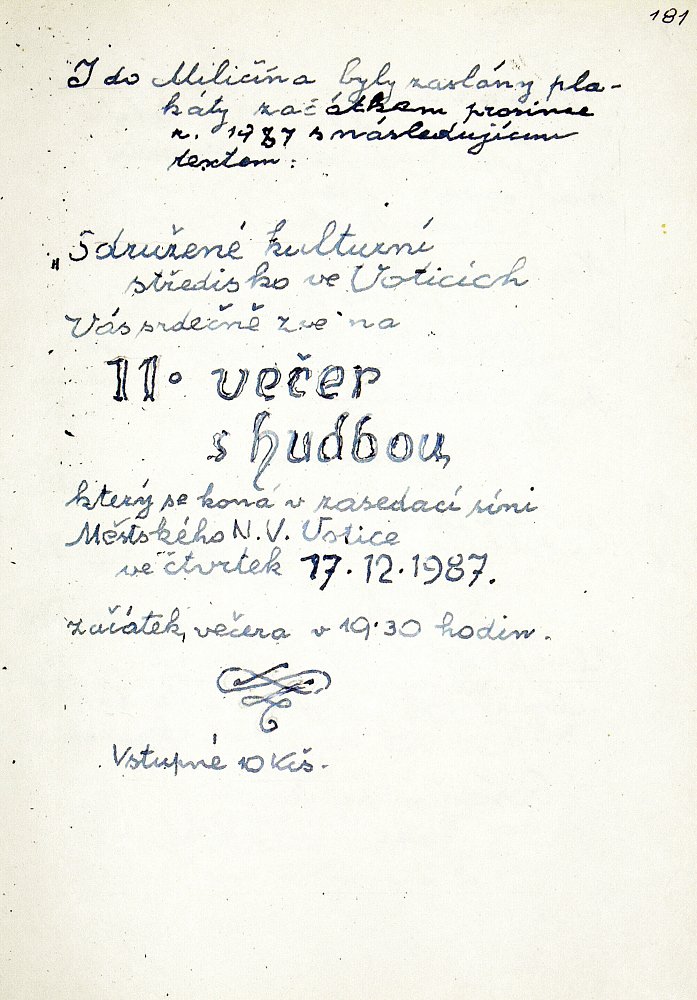 181
I do Miličína byly zaslány pla-
káty začátkem prosince
r. 1987 s následujícím
textem:
„Sdružené kulturní
středisko ve Voticích
Vás srdečně zve na
11. večer
s hudbou,
který se koná v zasedací síni
Městského N.V. Votice
ve čtvrtek 17.12.1987.
začátek večera v 19.30 hodin.
Vstupné 10 Kčs.